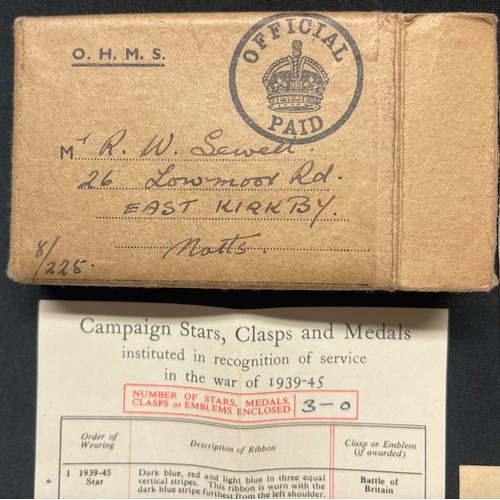 O. H. M. S.
OFFICIAL
PAID
Mr R. W. Sewell.
26 Lowmoor Rd.
EAST KIRKBY.
Notts.
8/225.
Campaign Stars, Clasps and Medals
instituted in recognition of service
in the war of 1939-45
NUMBER OF STARS, MEDALS,
CLASPS or EMBLEMS ENCLOSED 3-0
Order of
Wearing
Description of Ribbon
Clasp or Emblem
(if awarded)
1 1939-45
Star
Dark blue, red and light blue in three equal
vertical stripes. This ribbon is worn with the
dark blue stripe furthest from the left shoulder.
Battle of
Britain